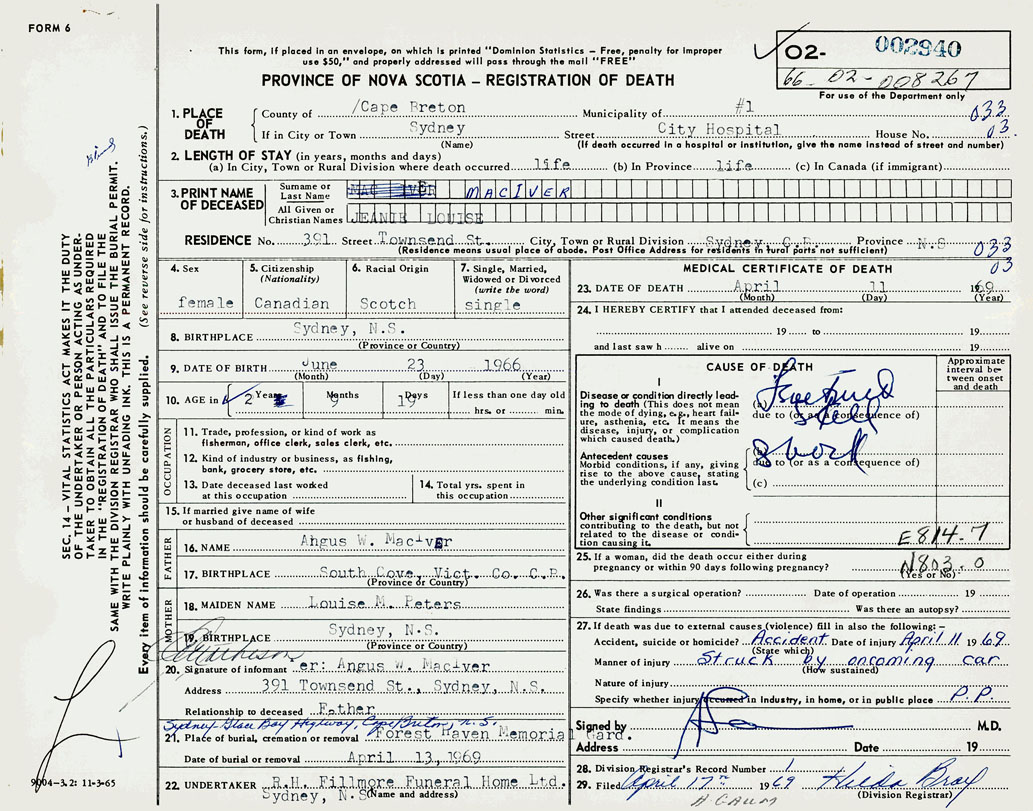 FORM 6
This form, if placed in an envelope, on which is printed "Dominion Statistics – Free, penalty for improper
use $50," and properly addressed will pass through the mail "FREE"
PROVINCE OF NOVA SCOTIA – REGISTRATION OF DEATH
O2- 002940
66- 02-008267
For use of the Department only
1. PLACE OF DEATH
County of /Cape Breton Municipality of #1 033
If in City or Town Sydney Street City Hospital House No. 03
(Name) (If death occurred in a hospital or institution, give the name instead of street and number)
2. LENGTH OF STAY (in years, months and days)
(a) In City, Town or Rural Division where death occurred life (b) In Province life (c) In Canada (if immigrant)
3. PRINT NAME OF DECEASED
Surname or Last Name MAC IVER MACIVER
All Given or Christian Names JEANIE LOUISE
RESIDENCE No. 391 Street Townsend St. City, Town or Rural Division Sydney C.B. Province N.S 033
(Residence means usual place of abode. Post Office Address for residents in rural parts not sufficient)
03
4. Sex
female
5. Citizenship
(Nationality)
Canadian
6. Racial Origin
Scotch
7. Single, Married,
Widowed or Divorced
(write the word)
single
8. BIRTHPLACE Sydney, N.S.
(Province or Country)
9. DATE OF BIRTH June 23 1966
(Month) (Day) (Year)
10. AGE in 2 Years 9 Months 19 Days If less than one day old
hrs. or min.
OCCUPATION
11. Trade, profession, or kind of work as
fisherman, office clerk, sales clerk, etc.
12. Kind of industry or business, as fishing,
bank, grocery store, etc.
13. Date deceased last worked
at this occupation
14. Total yrs. spent in
this occupation
15. If married give name of wife
or husband of deceased
FATHER
16. NAME Angus W. MacIver
17. BIRTHPLACE South Cove, Vict. Co. C.B.
(Province or Country)
MOTHER
18. MAIDEN NAME Louise M. Peters
19. BIRTHPLACE Sydney, N.S.
(Province or Country)
20. Signature of informant er: Angus W. MacIver
Address 391 Townsend St., Sydney, N.S.
Relationship to deceased Father
Sydney Glace Bay Highway, Cape Breton, N.S.
21. Place of burial, cremation or removal Forest Haven Memorial Gard.
Date of burial or removal April 13, 1969
22. UNDERTAKER R.H. Fillmore Funeral Home Ltd.
Sydney, N.S (Name and address)
MEDICAL CERTIFICATE OF DEATH
23. DATE OF DEATH April 11 1969
(Month) (Day) (Year)
24. I HEREBY CERTIFY that I attended deceased from:
19 to 19
and last saw h alive on 19
CAUSE OF DEATH
Approximate interval between onset and death
I
Disease or condition directly leading to death (This does not mean the mode of dying, e.g., heart failure, asthenia, etc. It means the disease, injury, or complication which caused death.)
(a) Fractured
due to (or as a consequence of)
skull
Antecedent causes
Morbid conditions, if any, giving rise to the above cause, stating the underlying condition last.
(b) shock
due to (or as a consequence of)
(c)
II
Other significant conditions contributing to the death, but not related to the disease or condition causing it.
E814.7
25. If a woman, did the death occur either during
pregnancy or within 90 days following pregnancy? N803.0
(Yes or No)
26. Was there a surgical operation? Date of operation 19
State findings Was there an autopsy?
27. If death was due to external causes (violence) fill in also the following:–
Accident, suicide or homicide? Accident Date of injury April 11 1969
(State which)
Manner of injury Struck by oncoming car
(How sustained)
Nature of injury
Specify whether injury occurred in Industry, in home, or in public place P.P.
Signed by M.D.
Address Date 19
28. Division Registrar's Record Number 1
29. Filed April 17th 1969 Hilda Bray
(Division Registrar)
SEC. 14 – VITAL STATISTICS ACT MAKES IT THE DUTY
OF THE UNDERTAKER OR PERSON ACTING AS UNDER-
TAKER TO OBTAIN ALL THE PARTICULARS REQUIRED
IN THE "REGISTRATION OF DEATH" AND TO FILE THE
SAME WITH THE DIVISION REGISTRAR WHO SHALL ISSUE THE BURIAL PERMIT.
WRITE PLAINLY WITH UNFADING INK. THIS IS A PERMANENT RECORD.
Every item of information should be carefully supplied. (See reverse side for instructions.)
9004–3.2: 11-3-65